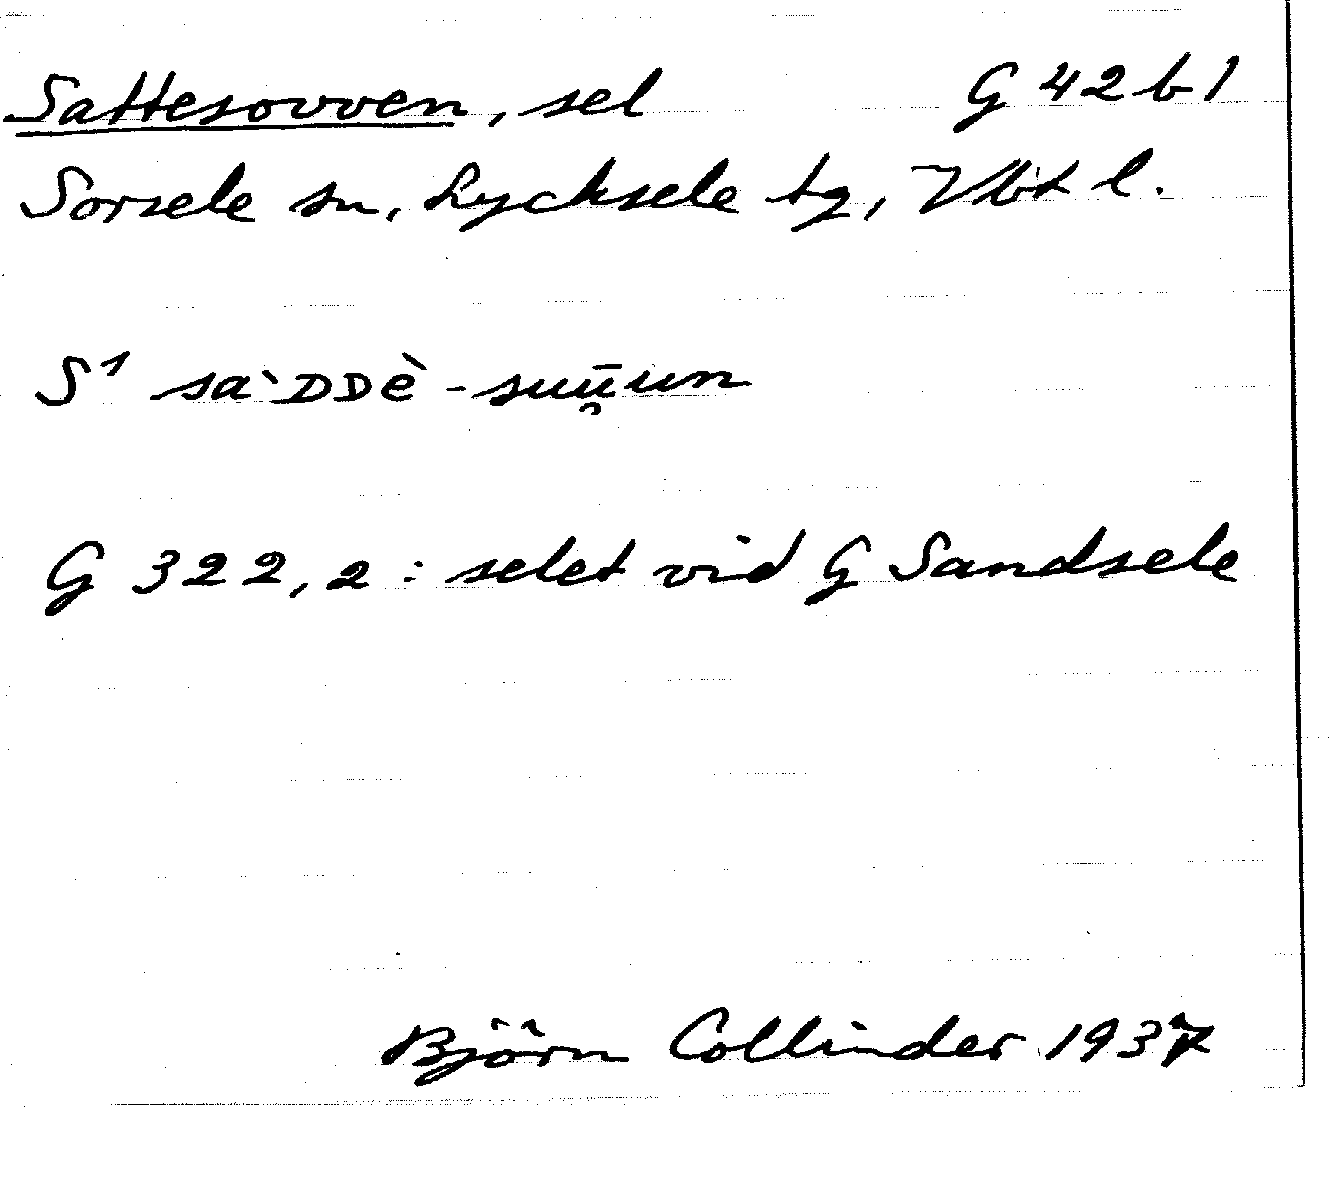 Sattesovven, sel G 42 b 1
Sorsele sn, Lycksele tg, Vbt l.
S¹ sàᴅᴅè - suū̯un
G 322,2: selet vid G Sandsele
Björn Collinder 1937